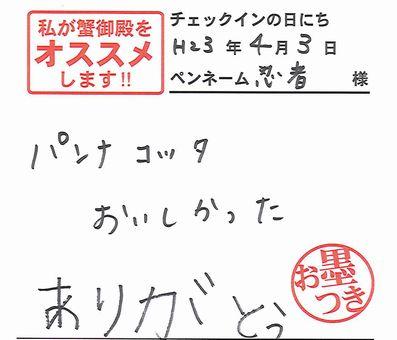 私が蟹御殿を
オススメ
します!!
チェックインの日にち
H23年4月3日
ペンネーム 忍者 様
パンナコッタ
おいしかった
ありがとう
お墨
つき